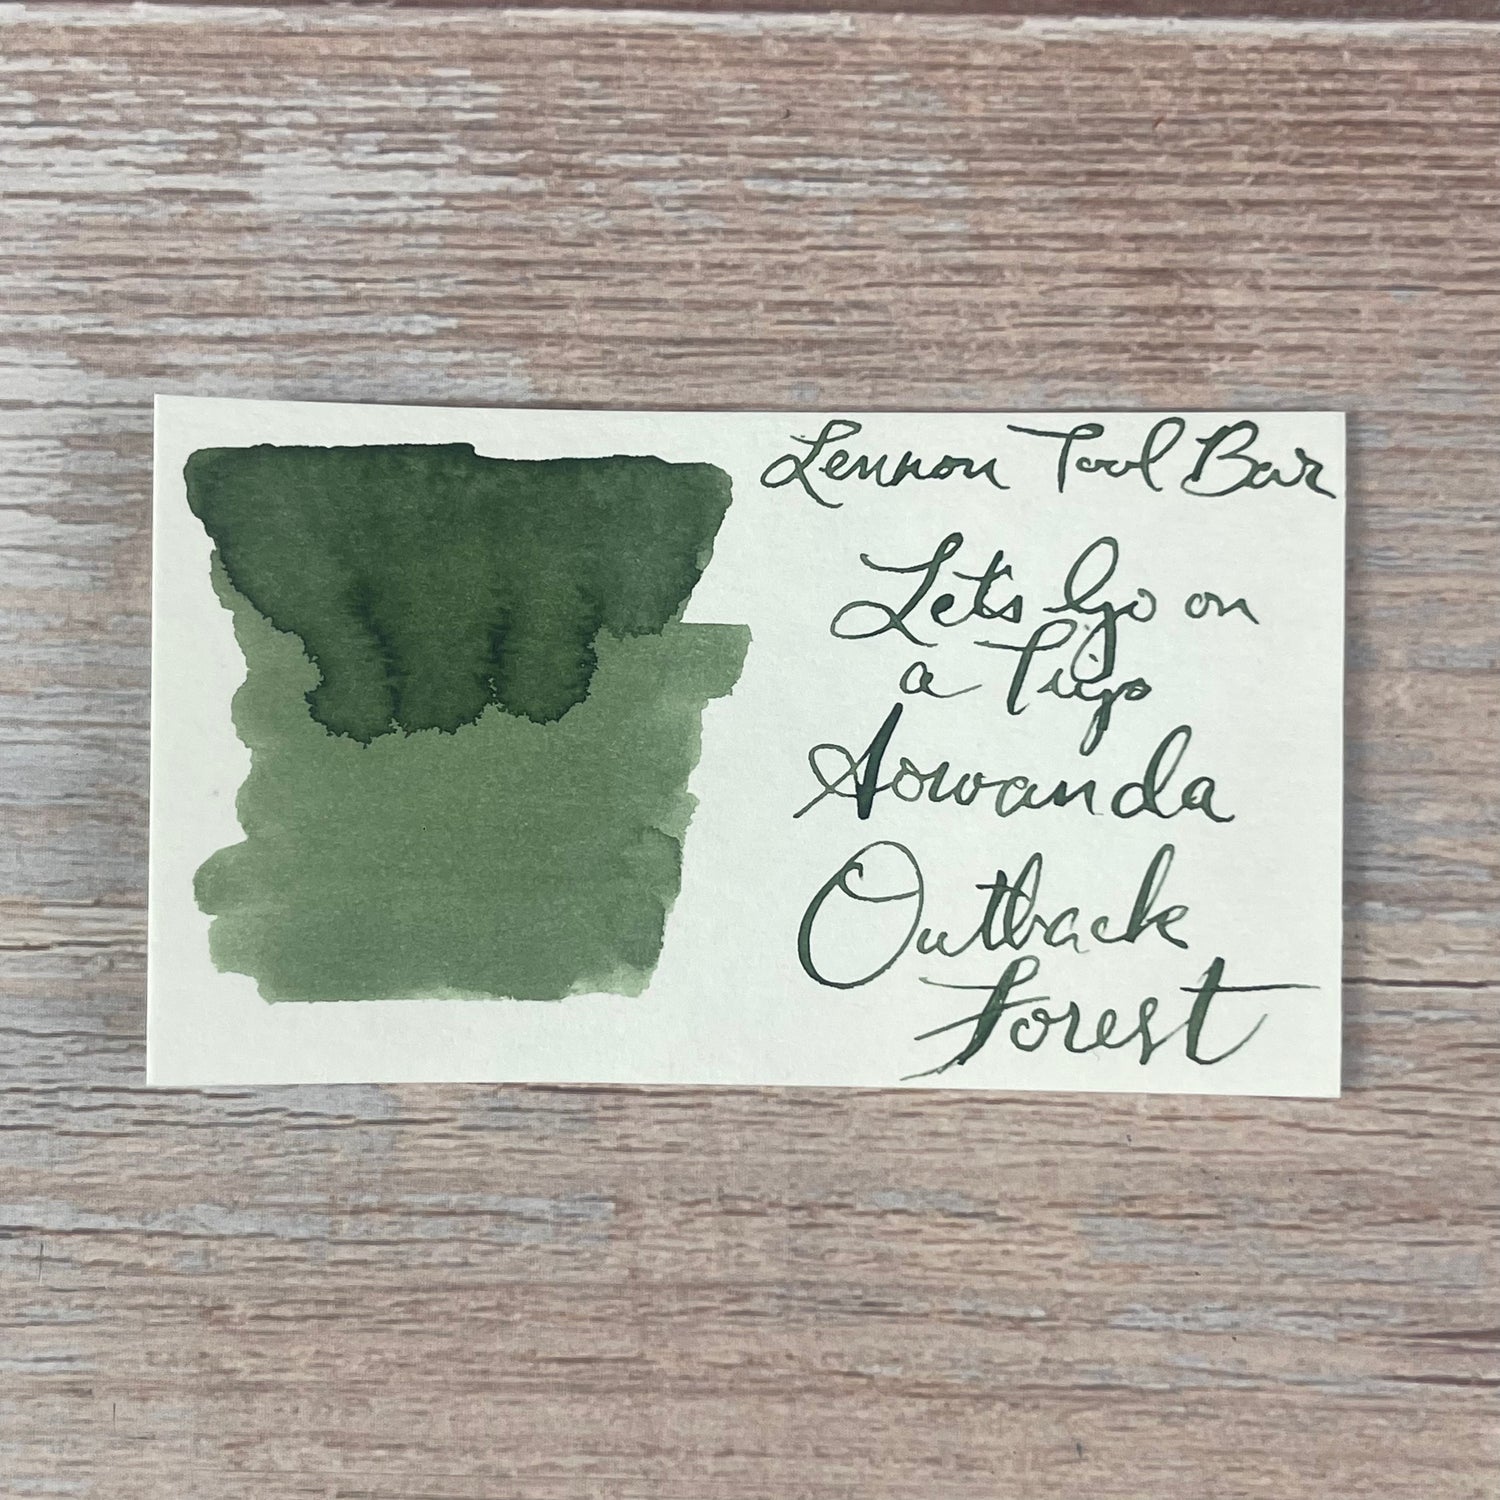 Lennon Tool Bar
Let's Go on
a Trip
Aowanda
Outback
Forest